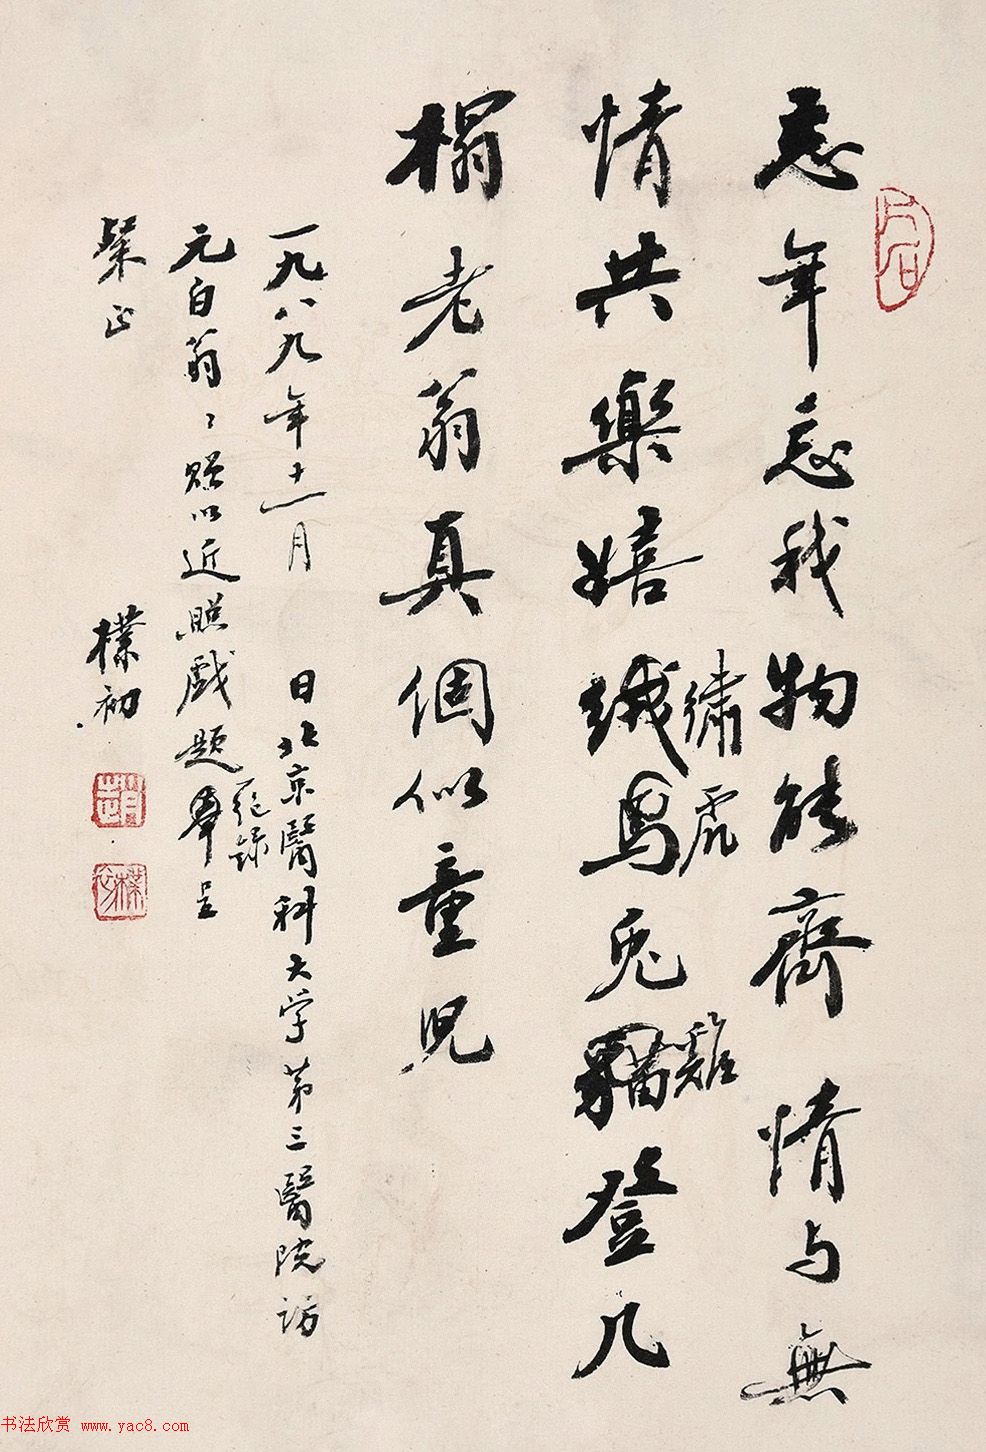 忘年忘我物能齊 情与無
情共樂嬉絨馬兔貓登几
繡虎
雞
榻老翁真個似童児
一九八九年十一月 日北京醫科大学第三醫院訪
元白翁〻贈以近照戲題奉呈
一絕録
粲正 樸初
樸初
书法欣赏 www.yac8.com